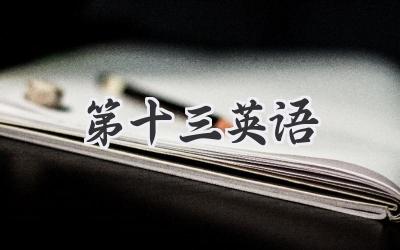 第十三英语